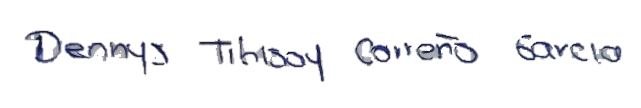 Dennys Tibisay Carreño Garcia